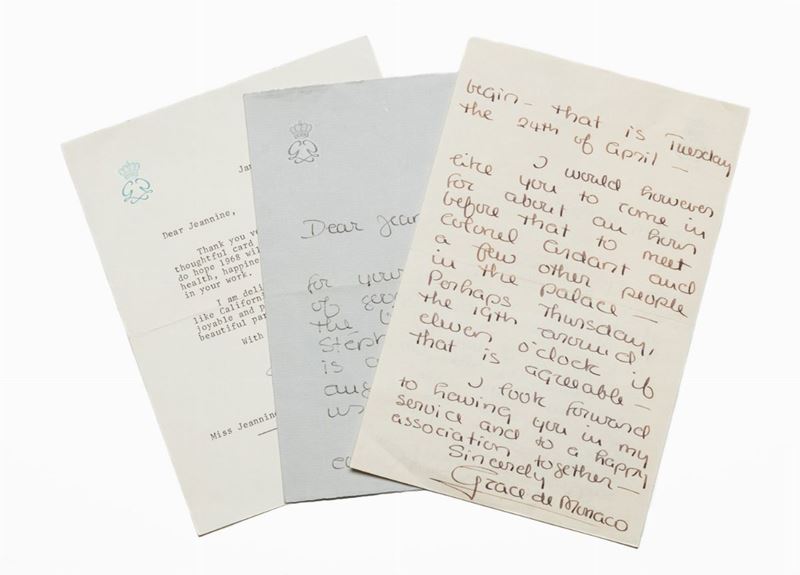 Jan
Dear Jeannine,
Thank you ve
thoughtful card
do hope 1968 wil
health, happine
in your work.
I am deli
like Californi
joyable and p
beautiful par
With
Miss Jeannine
Dear Jean
for your
of goo
the
Steph
is a
aug
us
begin – that is Tuesday
the 24th of April –
I would however
like you to come in
for about an hour
before that to meet
Colonel Ardant and
a few other people
in the palace –
Perhaps Thursday,
the 19th around
eleven o'clock if
that is agreeable –
I look forward
to having you in my
service and to a happy
association together –
Sincerely
Grace de Monaco